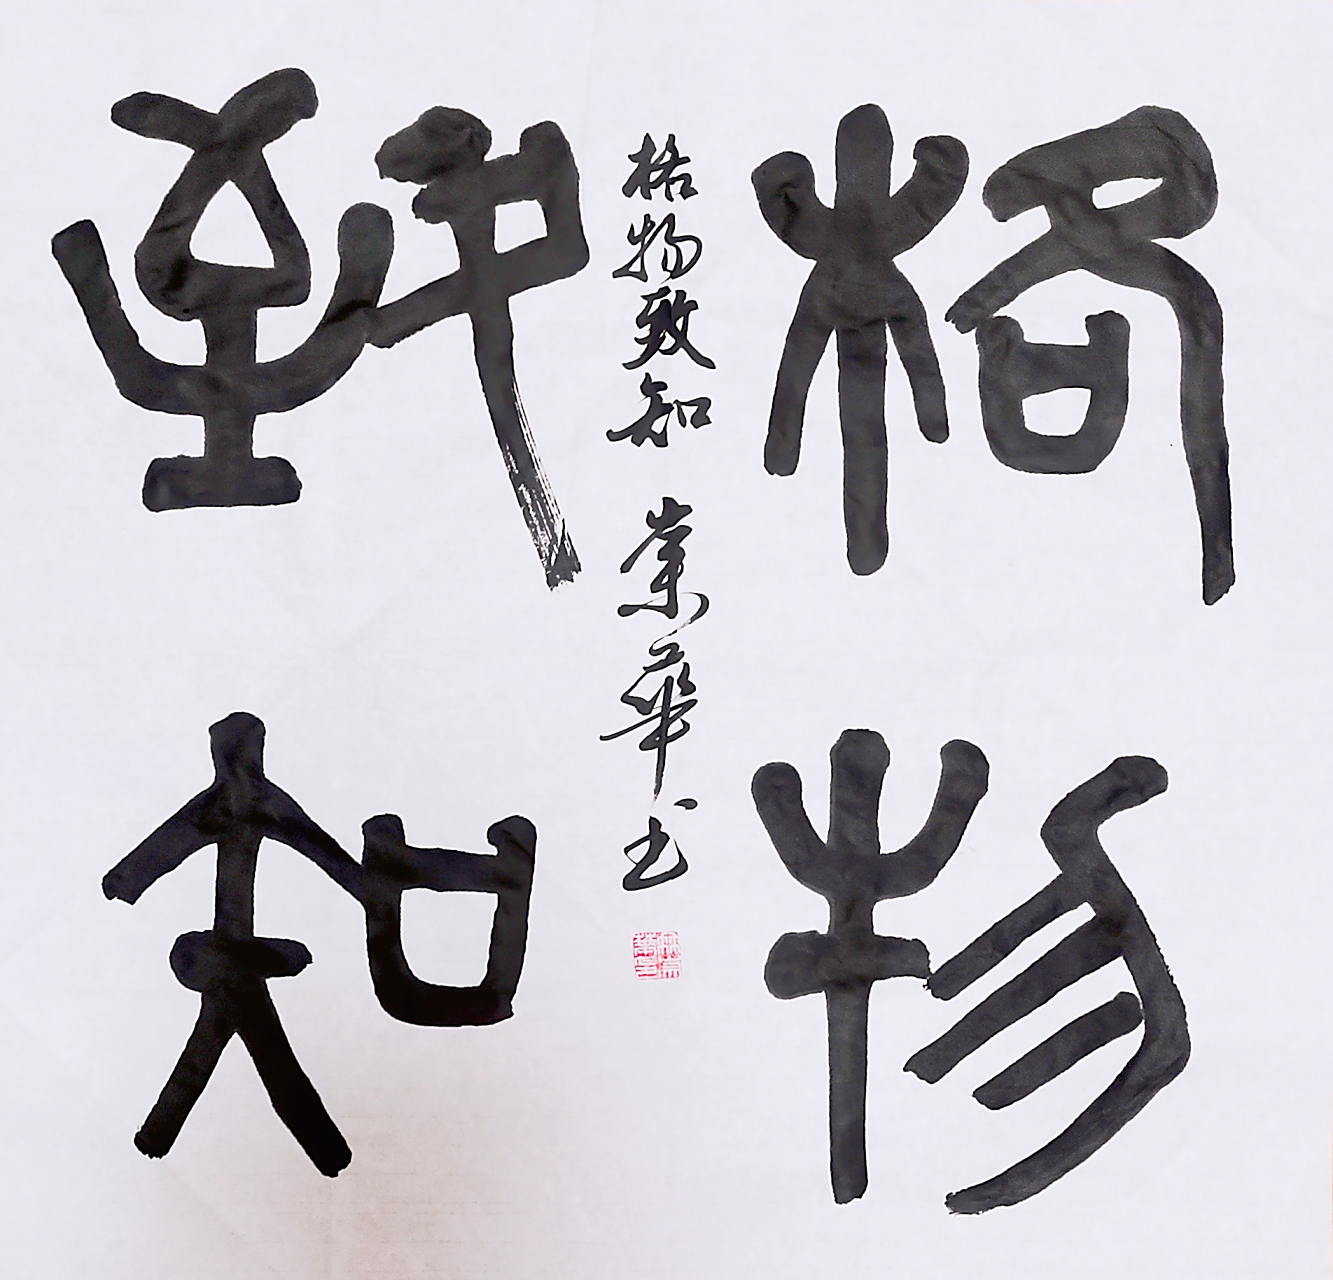 格物
致知
格物致知 業華书